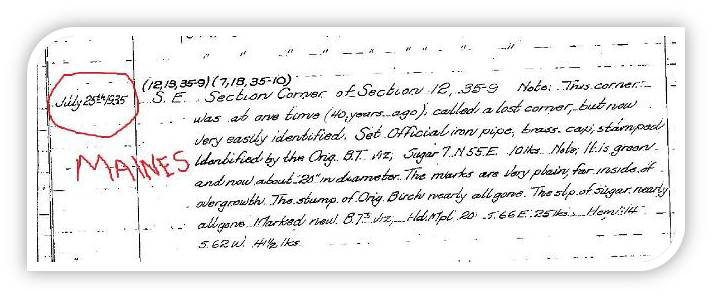 " " " " " " " " "
(12,13,35-9)(7,18,35-10)
July 25th 1935 S.E. Section Corner of Section 12, 35-9 Note: This corner
was at one time (40 years ago), called a lost corner, but now
very easily identified. Set Official iron pipe, brass cap, stamped
MAINES Identified by the Orig. B.T. viz, Sugar 7. N 55 E. 10 lks. Note, It is green
and now about 28" in diameter. The marks are very plain, far inside of
overgrowth. The stump of Orig. Birch nearly all gone. The stp of sugar nearly
all gone. Marked new B.Ts viz, Hd. Mpl 20 S.66 E. 25 lks. Hem. 14
S.62 W. 41½ lks.